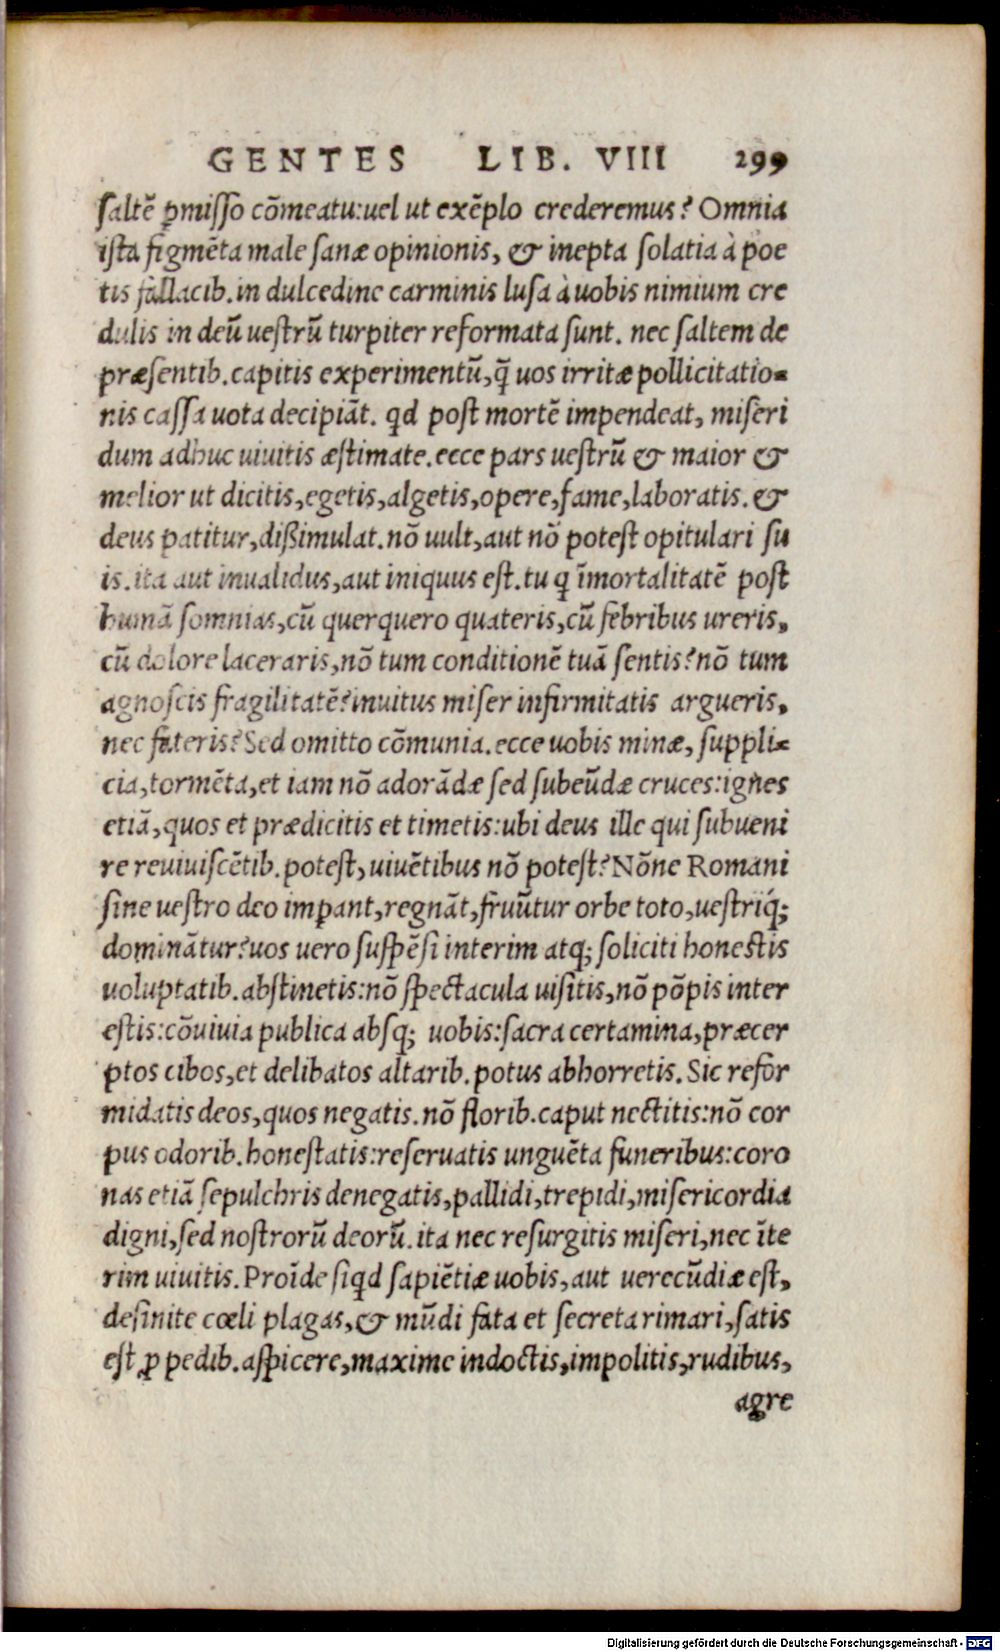 GENTES LIB. VIII 299
saltē ꝑmisso cōmeatu:uel ut exēplo crederemus? Omnia
ista figmēta male sanæ opinionis, & inepta solatia à poe
tis fallacib. in dulcedine carminis lusa à uobis nimium cre
dulis in deū uestrū turpiter reformata sunt. nec saltem de
præsentib. capitis experimentū, q̄ uos irritæ pollicitatio-
nis cassa uota decipiāt. qd post mortē impendeat, miseri
dum adhuc uiuitis æstimate. ecce pars uestrū & maior &
melior ut dicitis, egetis, algetis, opere, fame, laboratis. &
deus patitur, dißimulat. nō uult, aut nō potest opitulari su
is. ita aut inualidus, aut iniquus est. tu q īmortalitatē post
humā somnias, cū querquero quateris, cū febribus ureris,
cū dolore laceraris, nō tum conditionē tuā sentis? nō tum
agnoscis fragilitatē? inuitus miser infirmitatis argueris,
nec fateris? Sed omitto cōmunia. ecce uobis minæ, suppli-
cia, tormēta, et iam nō adorādæ sed subeūdæ cruces: ignes
etiā, quos et prædicitis et timetis: ubi deus ille qui subueni
re reuiuiscētib. potest, uiuētibus nō potest? Nōne Romani
sine uestro deo imꝑant, regnāt, fruūtur orbe toto, uestriq́;
dominātur? uos uero suspēsi interim atq; soliciti honestis
uoluptatib. abstinetis: nō spectacula uisitis, nō pōpis inter
estis: cōuiuia publica absq; uobis: sacra certamina, præcer
ptos cibos, et delibatos altarib. potus abhorretis. Sic refor
midatis deos, quos negatis. nō florib. caput nectitis: nō cor
pus odorib. honestatis: reseruatis unguēta funeribus: coro
nas etiā sepulchris denegatis, pallidi, trepidi, misericordia
digni, sed nostrorū deorū. ita nec resurgitis miseri, nec īte
rim uiuitis. Proīde siqd sapiētiæ uobis, aut uerecūdiæ est,
desinite cœli plagas, & mūdi fata et secreta rimari, satis
est ꝓ pedib. aspicere, maxime indoctis, impolitis, rudibus,
agre
Digitalisierung gefördert durch die Deutsche Forschungsgemeinschaft - DFG